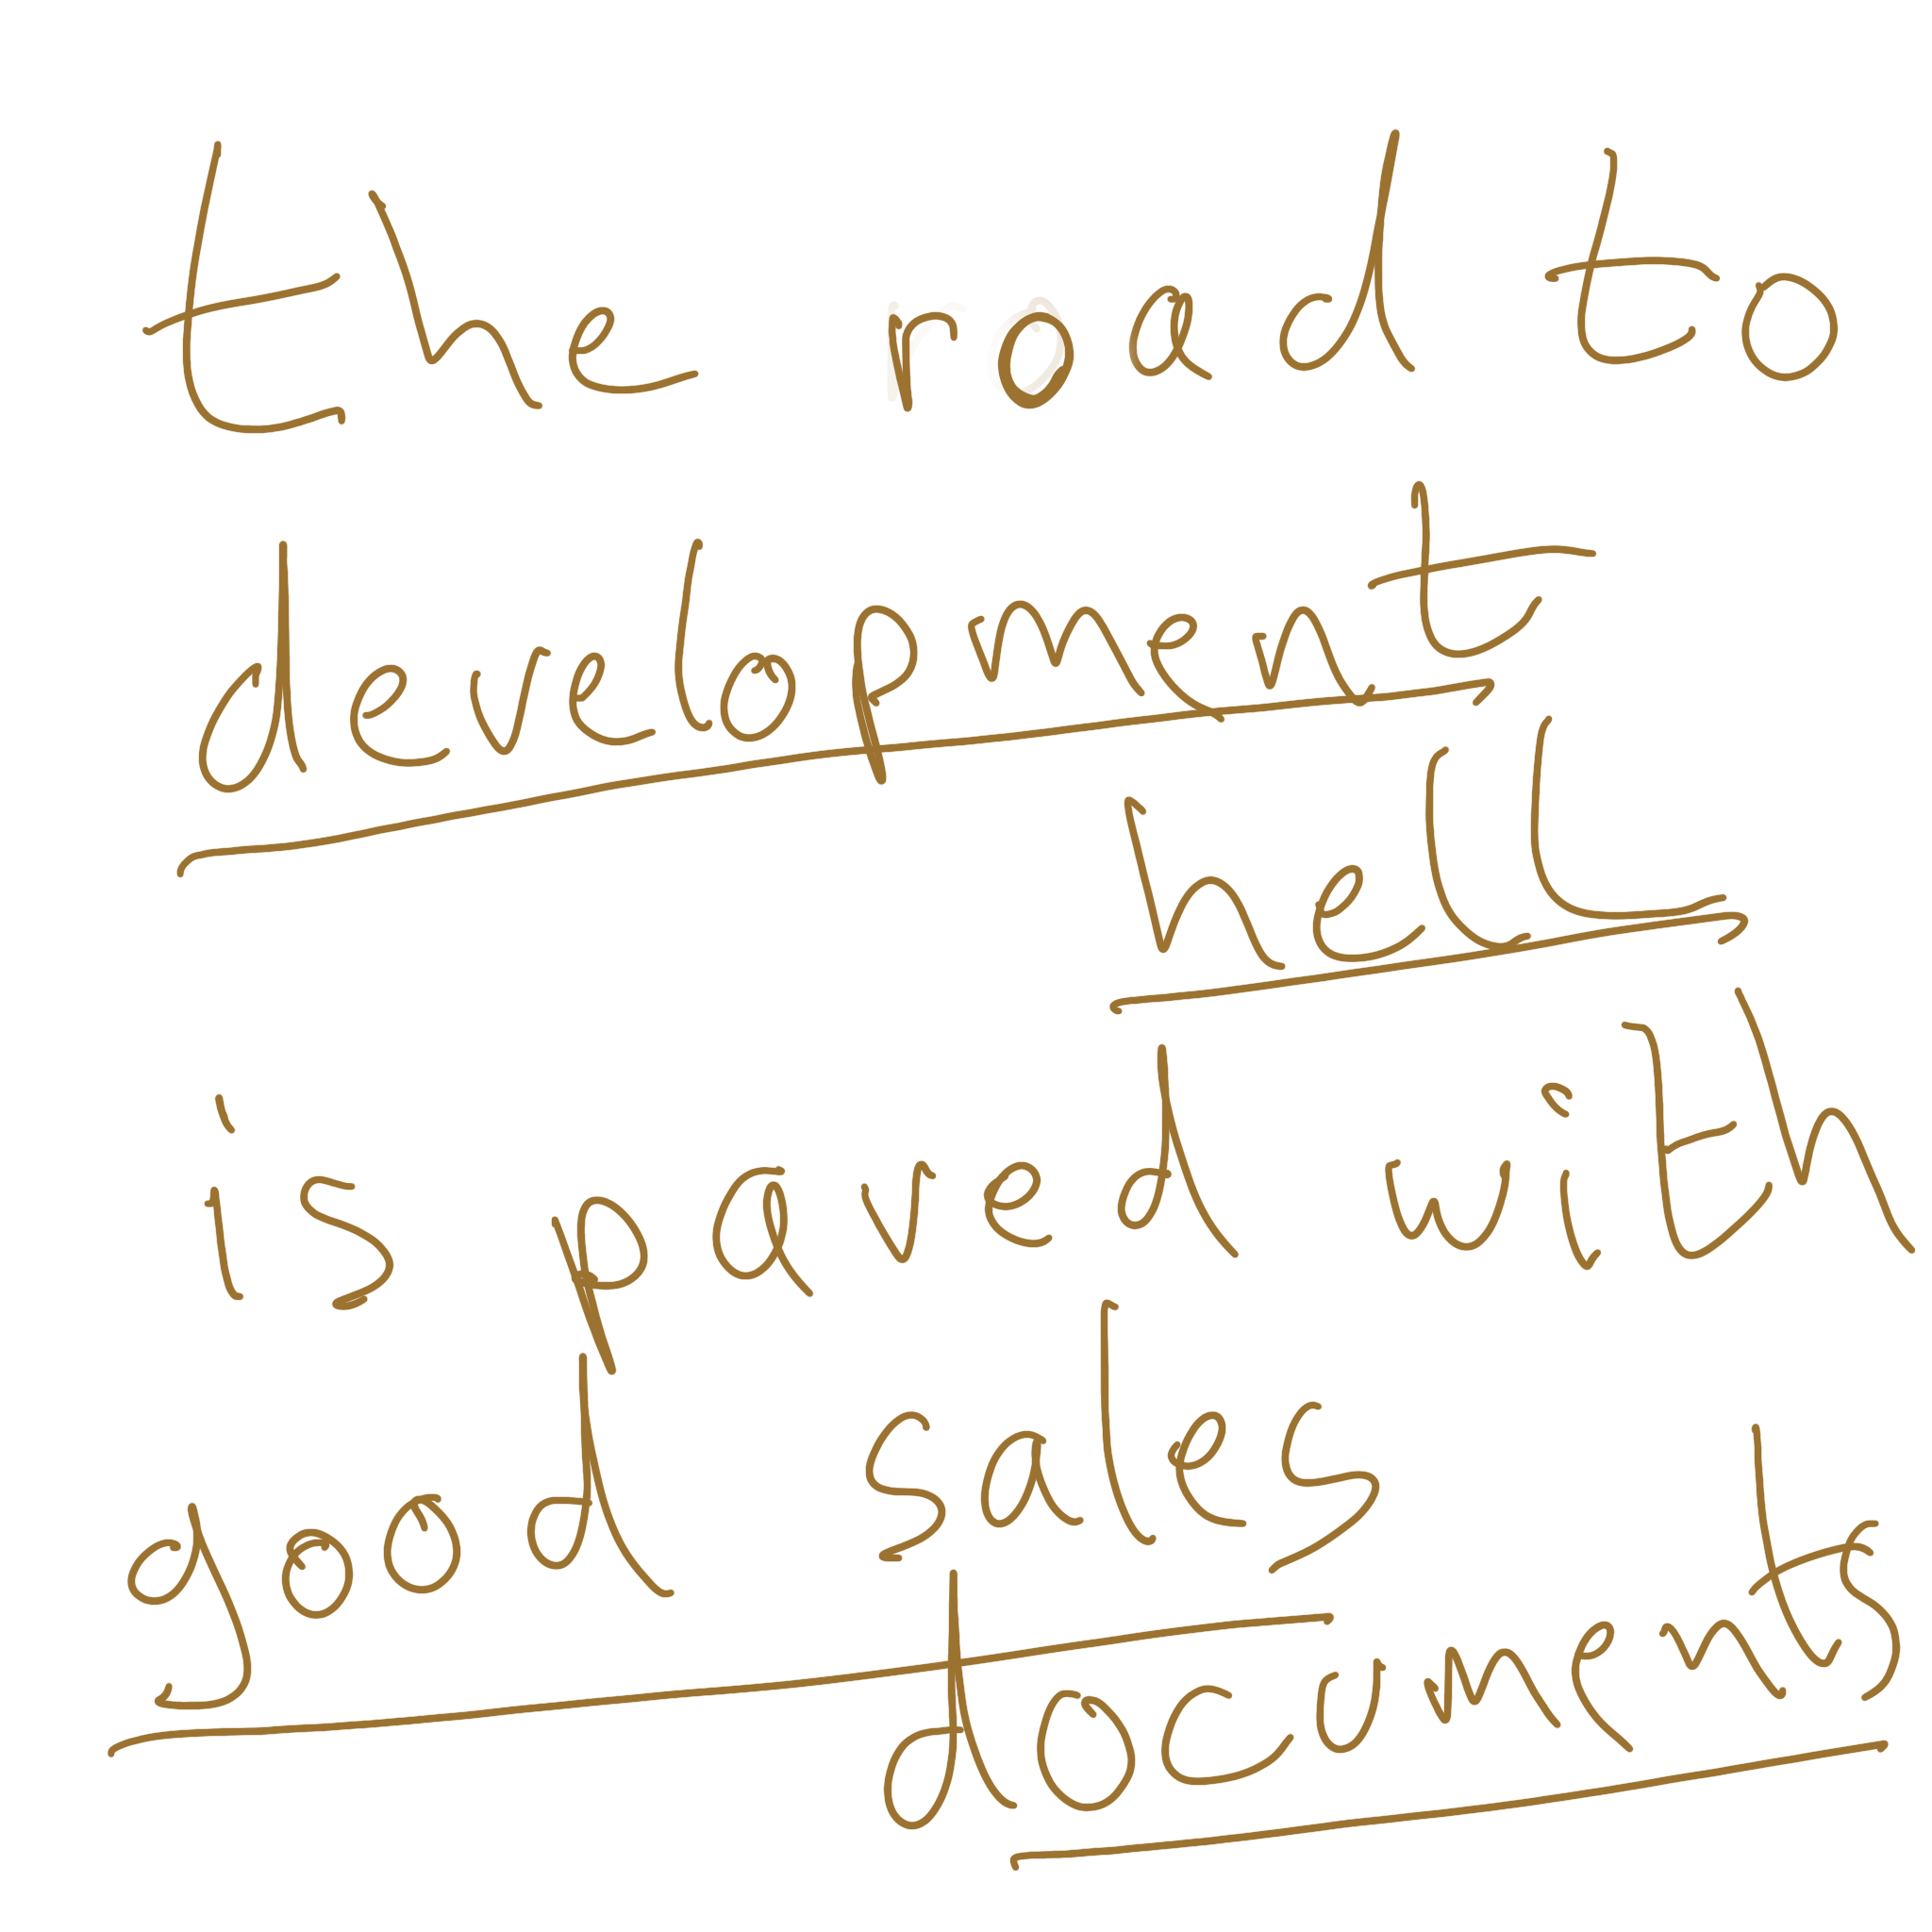 the road to
development
hell
is paved with
good sales
documents